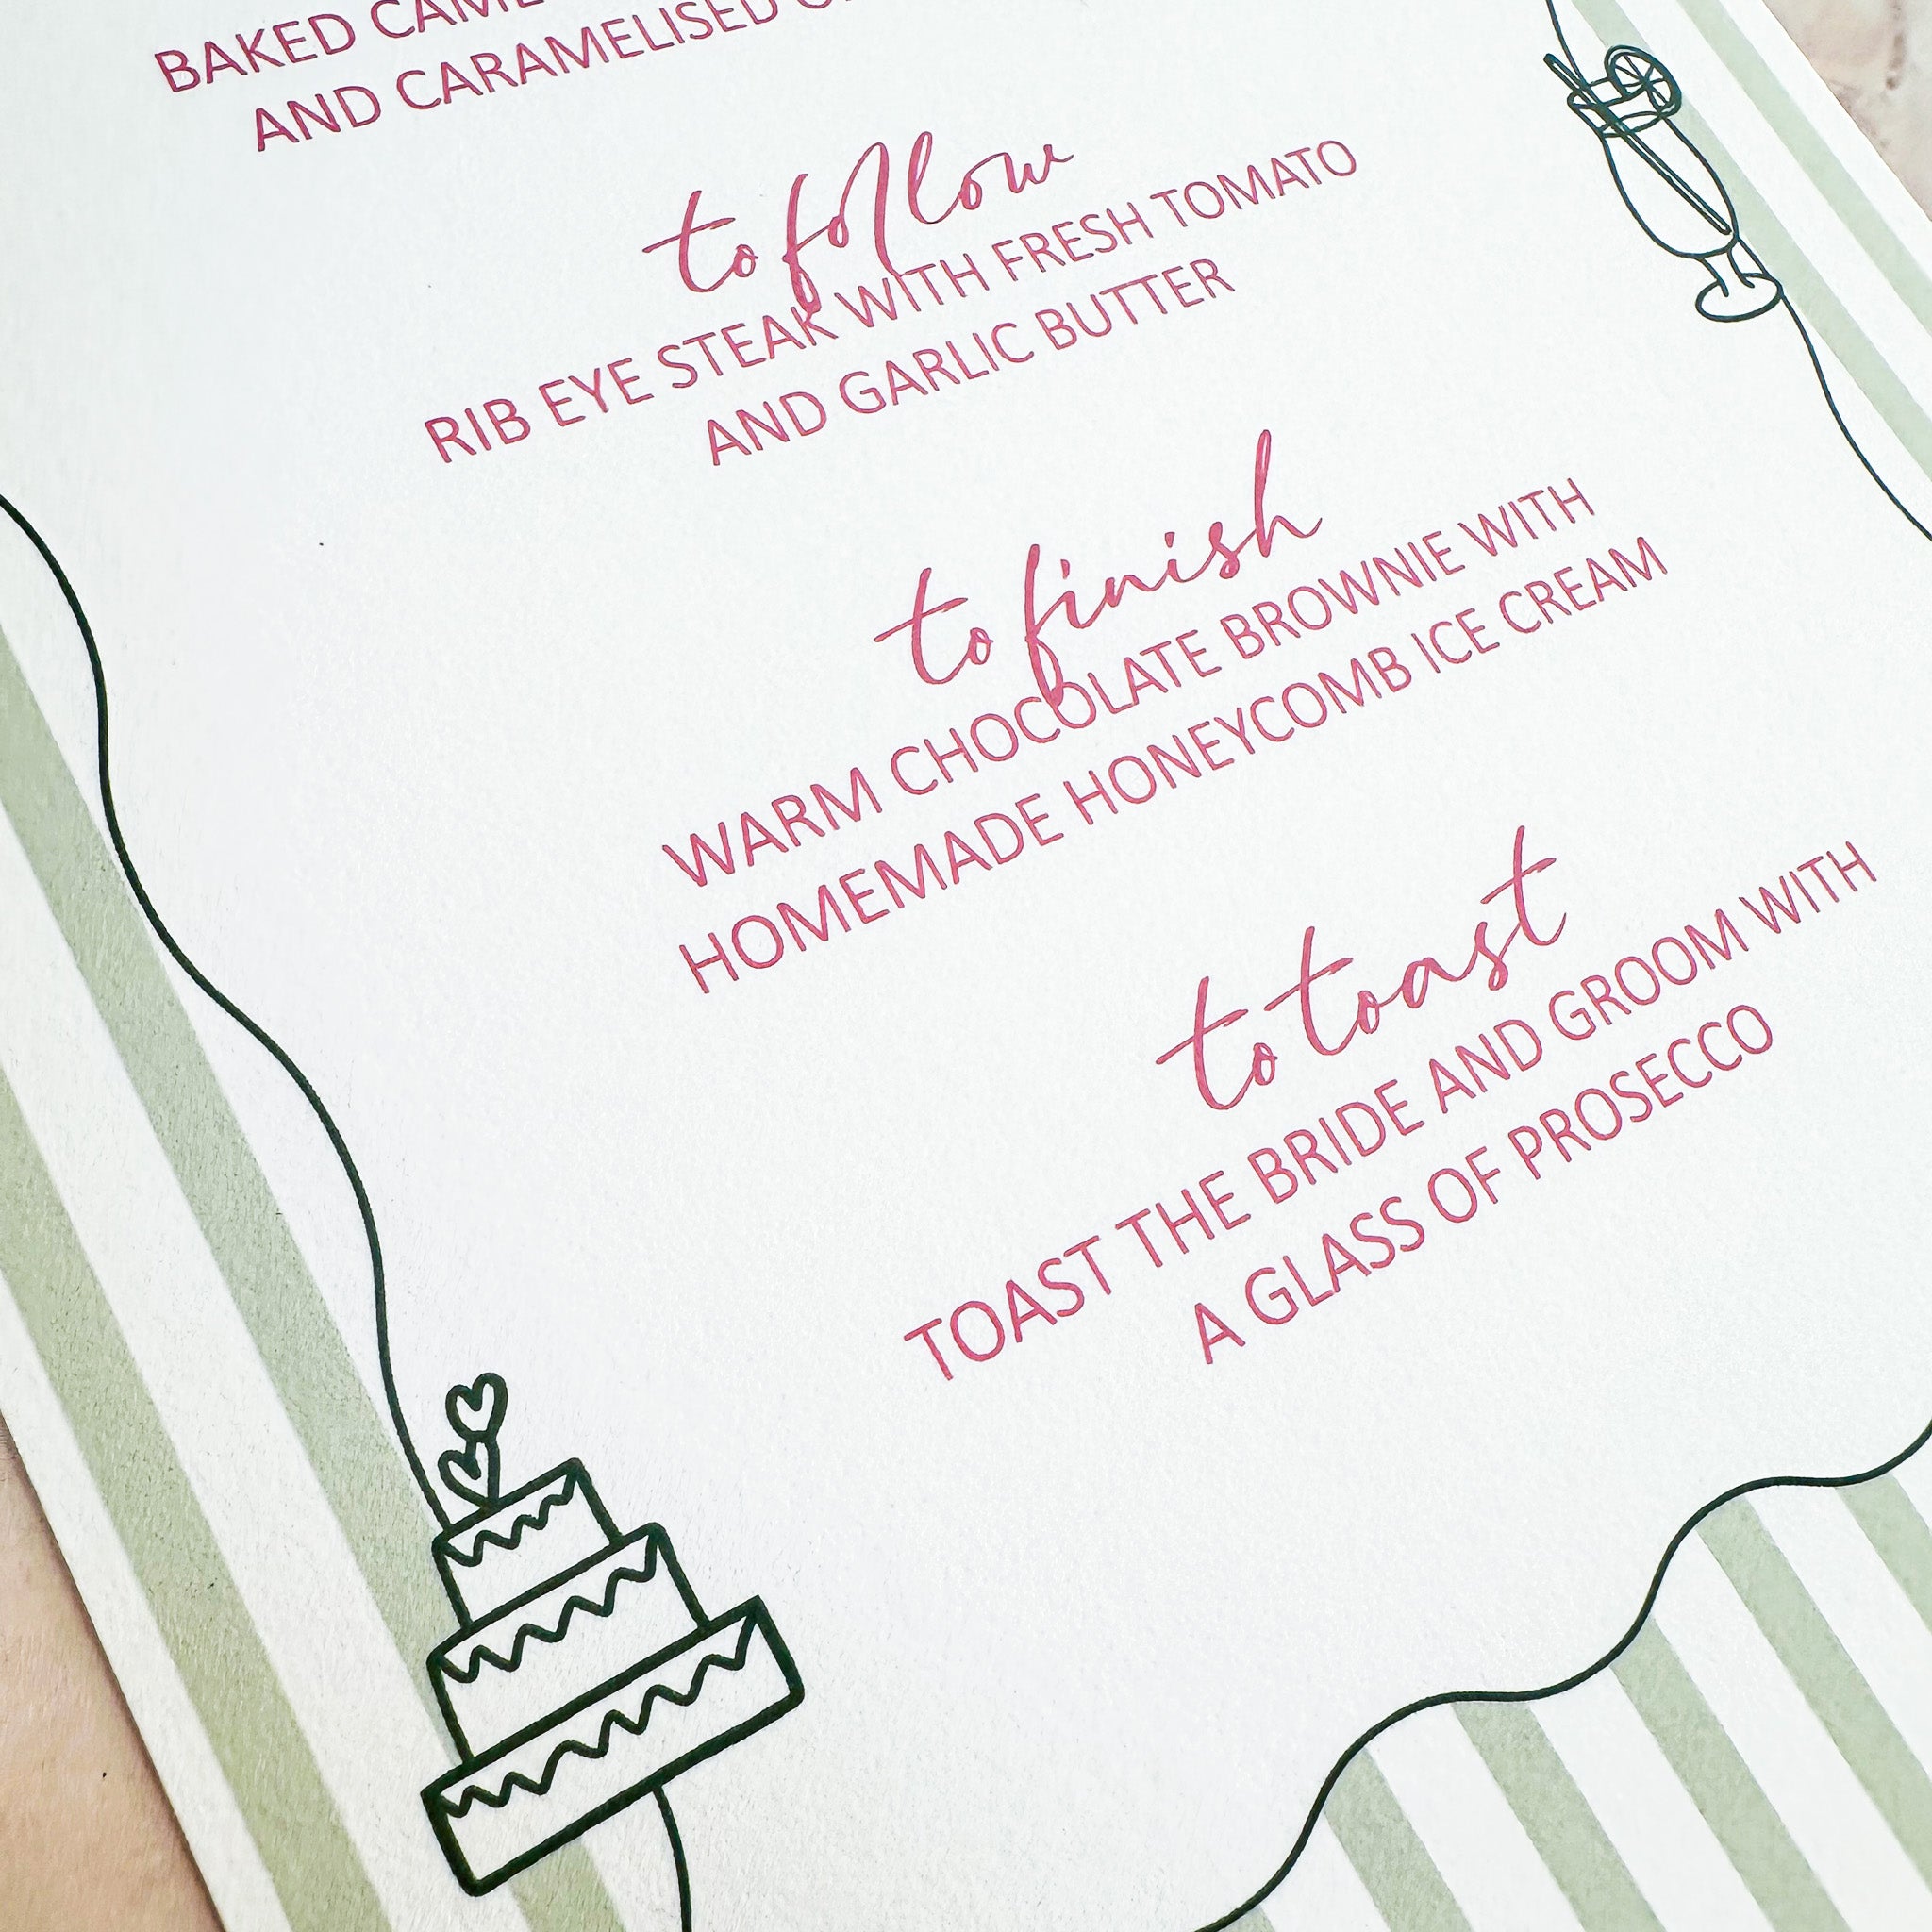 BAKED
AND CARAMELISED
to follow
RIB EYE STEAK WITH FRESH TOMATO
AND GARLIC BUTTER
to finish
WARM CHOCOLATE BROWNIE WITH
HOMEMADE HONEYCOMB ICE CREAM
to toast
TOAST THE BRIDE AND GROOM WITH
A GLASS OF PROSECCO